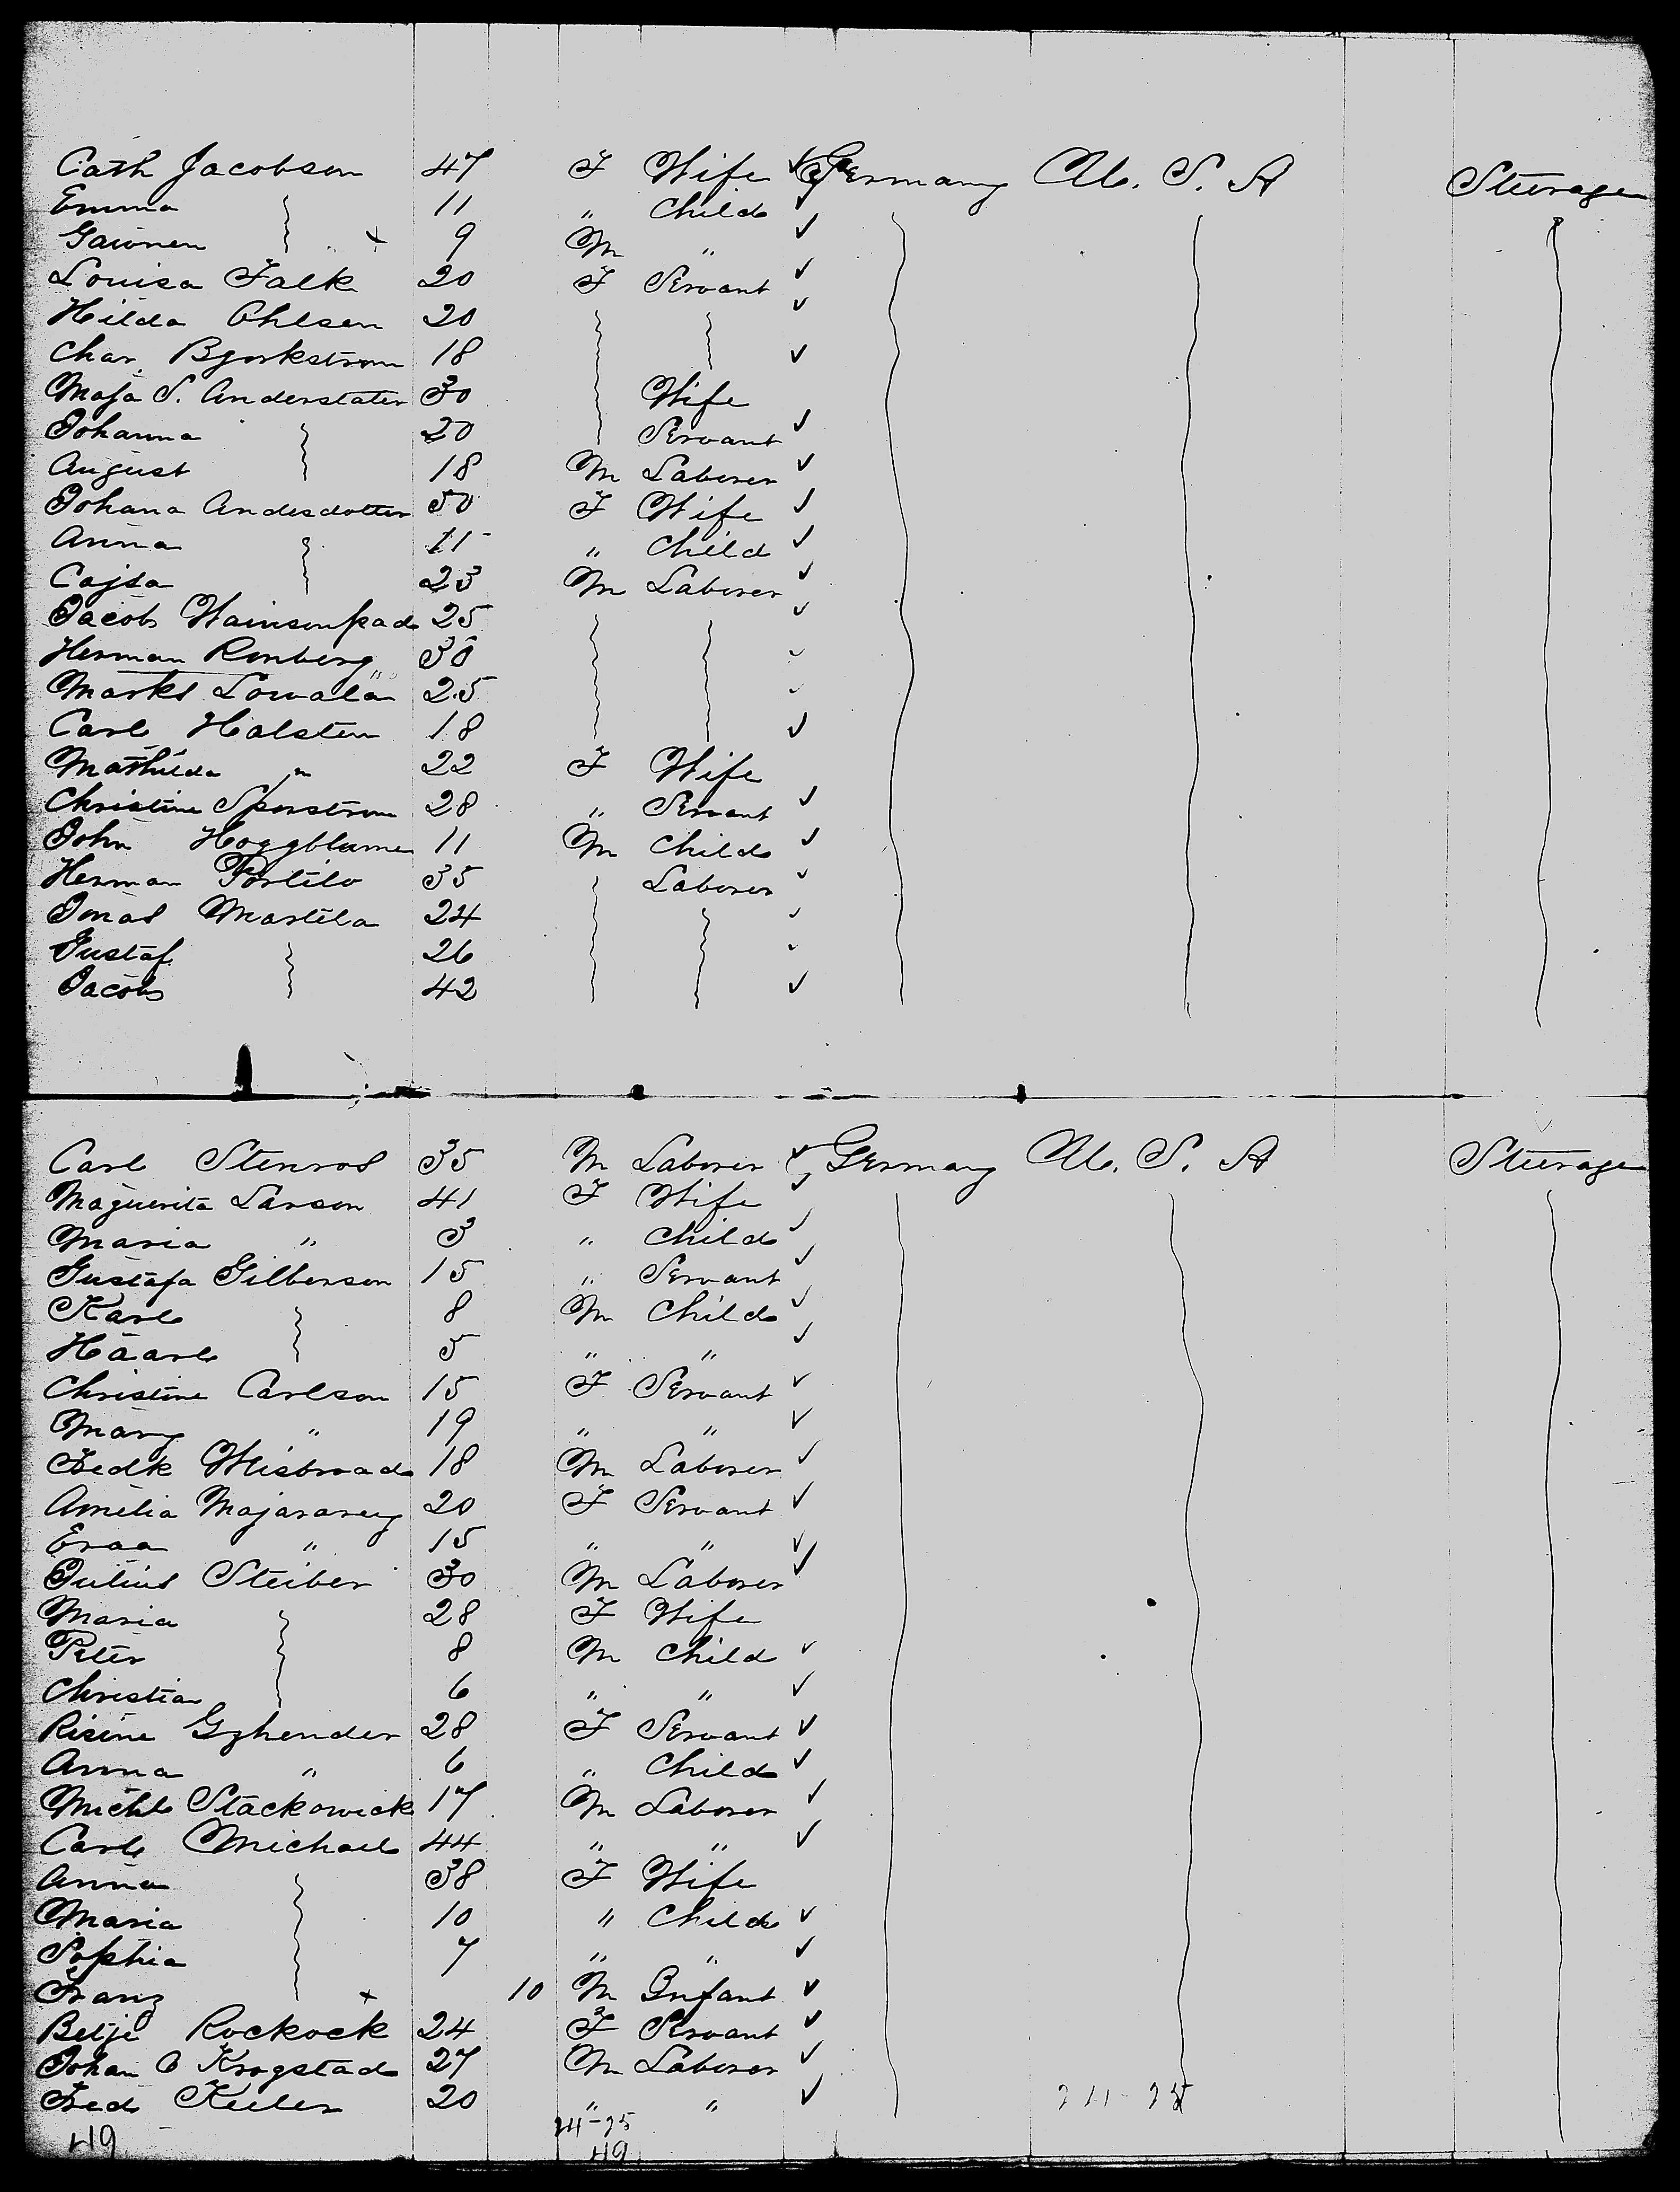 Cath Jacobson 47 F Wife Germany U. S. A Steerage
Emma 11 " Child
9 M "
Louisa Falk 20 F Servant
Hilda Ohlsen 20
Char. Bjorkstrom 18
Maja S. Anderstater 30 Wife
Johanna 20 Servant
August 18 M Laborer
Johana Andesdotter 50 F Wife
Anna 11 " Child
Cajsa 23 M Laborer
Jacob 25
Herman Ronberg 30
Marks Lowala 25
Carl Halsten 18
Mathilda " 22 F Wife
Christine Sporstrom 28 " Servant
John Hoggblume 11 M Child
Herman Portilo 35 Laborer
Jonas Martila 24
Gustaf 26
Jacob 42
Carl Stenros 35 M Laborer Germany U. S. A Steerage
Maguerita Larson 41 F Wife
Maria " 3 " Child
Gustafa Gilberson 15 " Servant
Karl 8 M Child
Haarl 5 " "
Christine Carlson 15 F Servant
Mary " 19 " "
Fredk Wisbroad 18 M Laborer
Amelia Majararey 20 F Servant
Evaa " 15 " "
Julius Steiber 30 M Laborer
Maria 28 F Wife
Peter 8 M Child
Christian 6 " "
Risine Gzhender 28 F Servant
Anna " 6 " Child
Michl Stackowick 17 M Laborer
Carl Michael 44 " "
Anna 38 F Wife
Maria 10 " Child
Sophia 7 " "
Franz x 10 M Infant
Betje Rockock 24 F Servant
Johan O Krogstad 27 M Laborer
Fred Keeler 20 " "
24-25
49 49